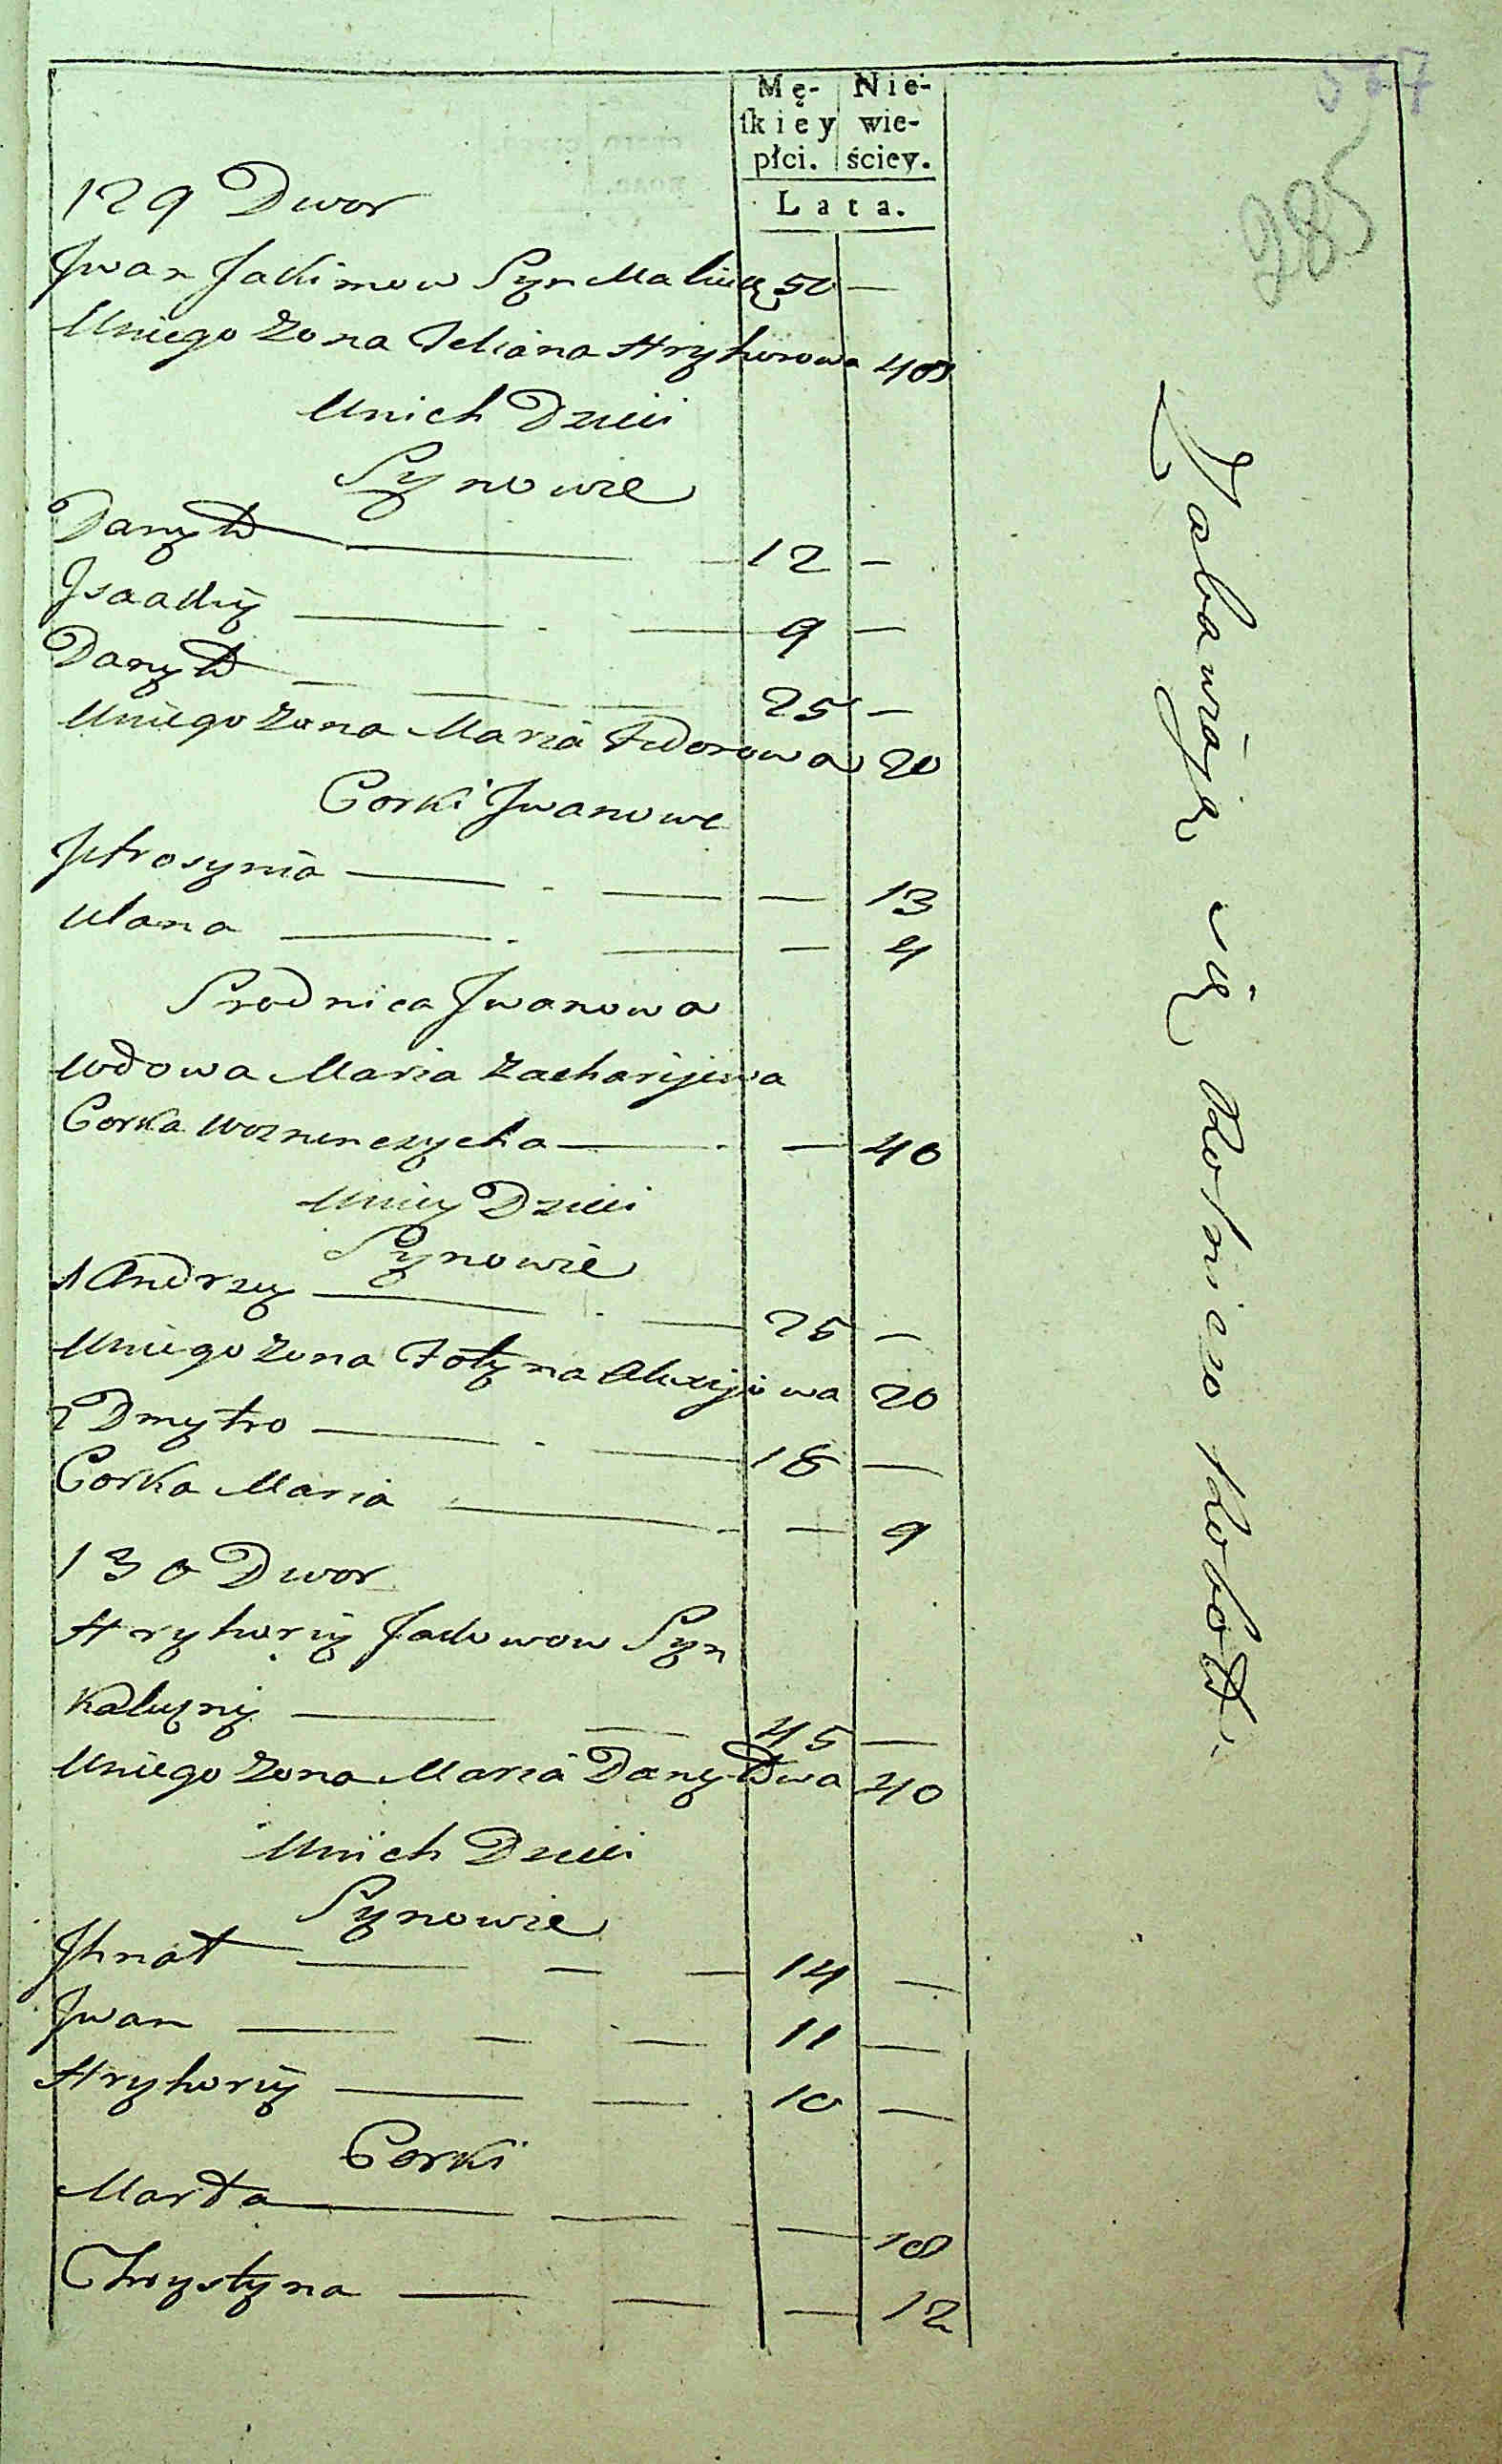 Mę- Nie-
ſkiey wie-
płci. ściey.
Lata.
285
129 Dwor
Jwan Jakimow Syn 50 —
Uniego Zona Hryhorowa 48
Unich Dzieci
Synowie
Danyło — 12 —
Jsaakiy — 9 —
Danyło — 25 —
Uniego Zona Maria Fedorowa 20
Corki Jwanowe
Jefrosynia — — 13
Ulana — — 4
Jwanowa
Wdowa Maria Zacharyjewa
Corka — — 40
Uniey Dzieci
Synowie
1 Andrzey — 25 —
Uniego Zona Fotyna Alexijowa 20
2 Dmytro — 18 —
Corka Maria — — 9
130 Dwor
Hryhoriy Jakowow Syn
Kałuzny — 45 —
Uniego Zona Maria Danyłowa 40
Unich Dzieci
Synowie
Jhnat — 14 —
Jwan — 11 —
Hryhoriy — 10 —
Corki
Marta — — 18
Chrystyna — — 12
Zabawiaią się Rolniczo Robotą